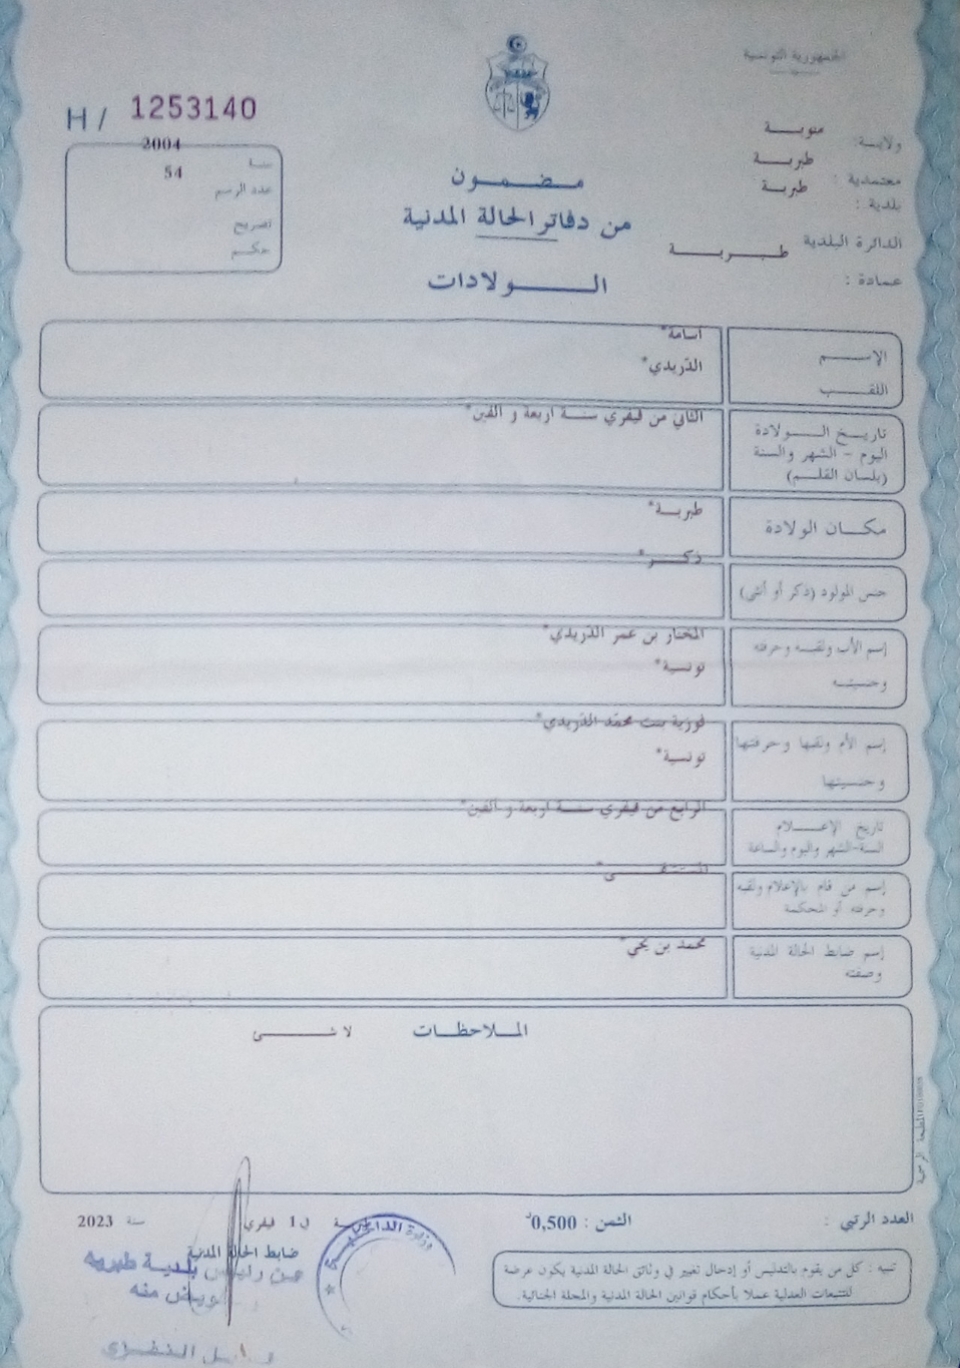 الجمهورية التونسية
H / 1253140
ولاية: منوبة
معتمدية : طبربة
بلدية : طبربة
الدائرة البلدية طبربة
عمادة :
سنة 2004
عدد الرسم 54
تصريح
حكم
مضمون
من دفاتر الحالة المدنية
الولادات
الإسم اسامة*
اللقب الدريدي*
تاريخ الولادة
اليوم - الشهر والسنة
(بلسان القلم)
الثاني من فيفري سنة اربعة و الفين*
مكان الولادة طبربة*
جنس المولود (ذكر أو أنثى) ذكر*
إسم الأب ولقبه وحرفته المختار بن عمر الدريدي*
وجنسيته تونسية*
إسم الأم ولقبها وحرفتها فوزية بنت محمد الدريدي*
وجنسيتها تونسية*
تاريخ الإعلام
السنة-الشهر واليوم والساعة
الرابع من فيفري سنة اربعة و الفين*
إسم من قام بالإعلام ولقبه
وحرفته أو المحكمة
المستشفى*
إسم ضابط الحالة المدنية
وصفته
محمد بن يحي*
الملاحظات لا شئ
المطبعة الرسمية
العدد الرتبي :
الثمن : 0,500د
في 1 فيفري سنة 2023
ضابط الحالة المدنية
عن رئيس بلدية طبربه
وبإذن منه
وزارة الداخلية
تنبيه : كل من يقوم بالتدليس أو إدخال تغيير في وثائق الحالة المدنية يكون عرضة
للتتبعات العدلية عملا بأحكام قوانين الحالة المدنية والمجلة الجنائية.